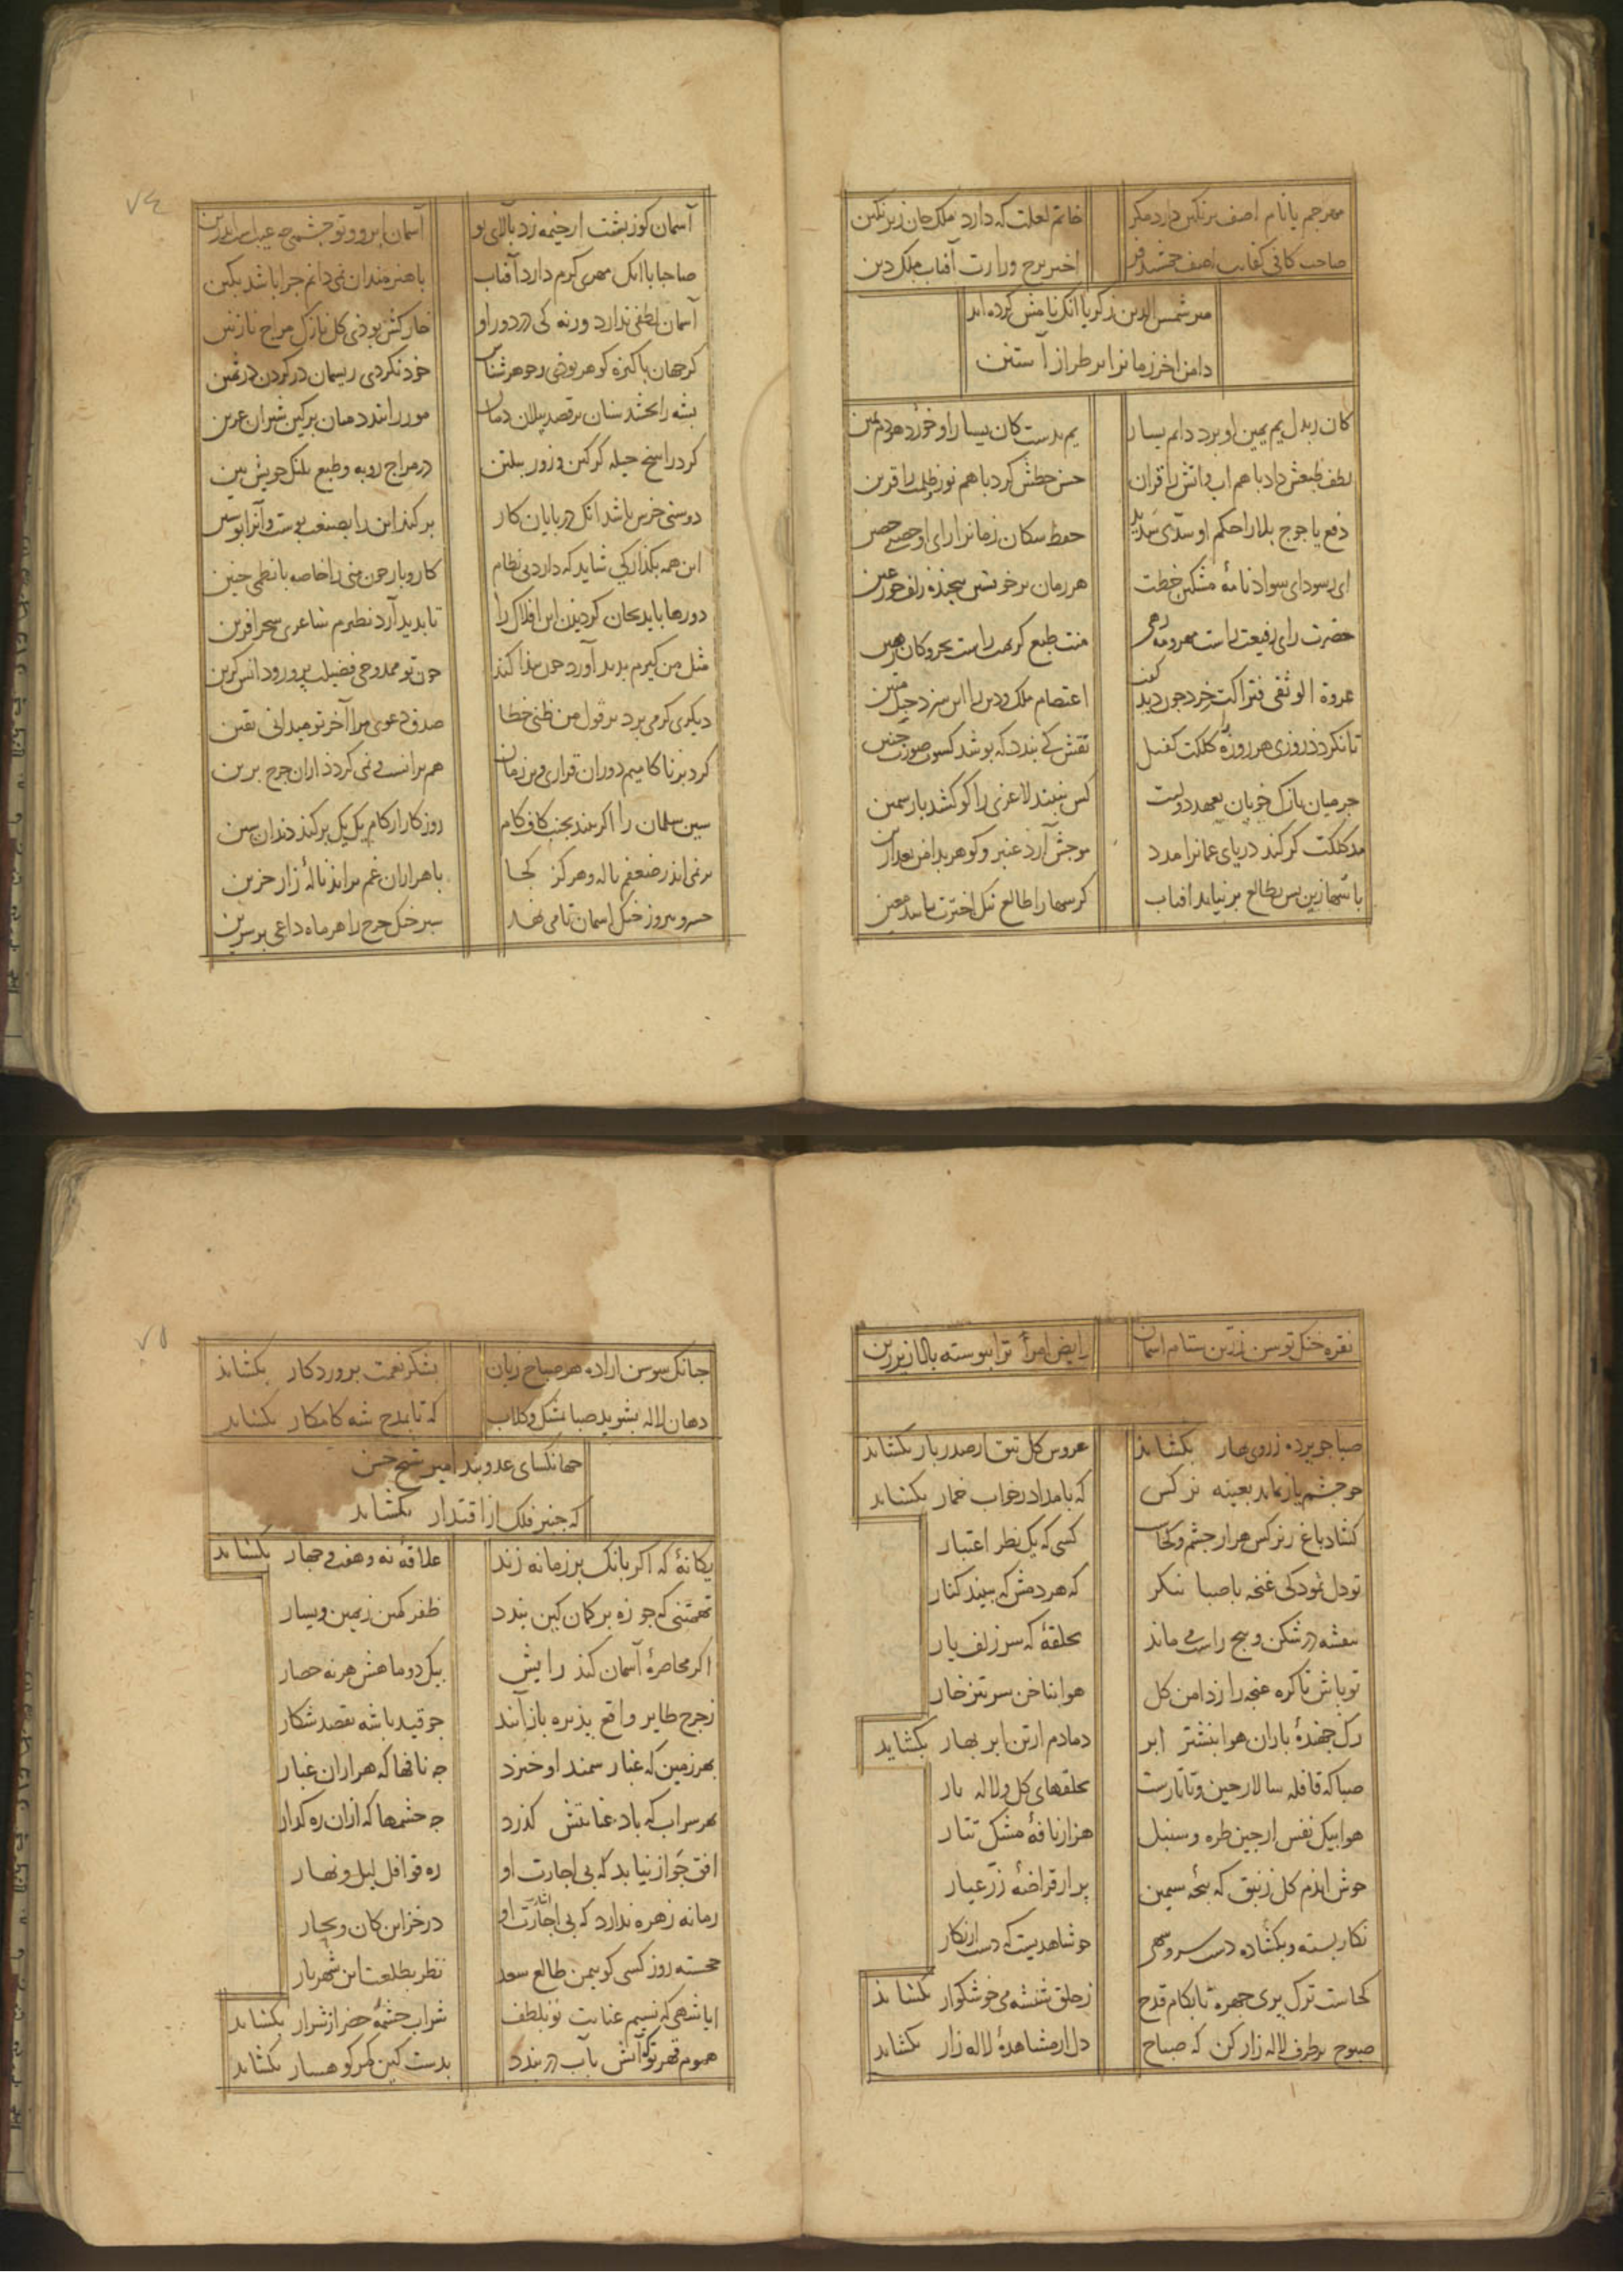 مهر جم یا نام اصف بر نکین دارد مکر
خاتم لعلت که دارد ملک جان زیر نکین
صاحب کافی کفایت اصف جمشید فر
اختر برج وزارت آفتاب ملک دین
میر شمس الدین زکریا انک نامش کرده اند
دامن اخر زمانرا بر طراز آستین
کان ز بذل یم یمین او برد دایم یسار
یم بدست کان یسار او خورد هردم یمین
لطف طبعش داد با هم اب و اتش را قران
حسن خطش کرد با هم نور و ظلمت را قرین
دفع یاجوج بلا را حکم او سدی سدید
حفظ سکان زمانرا رای او حصنی حصین
ای ز سودای سواد نامهٔ مشکین خطت
هر زمان بر خویشتن پیچیذه زلف حور عین
حضرت رای رفیعت راست مهر و مه رهی
منت طبع کریمت راست بحر و کان رهین
عروة الوثقی فتراکت خرد چون دید کفت
اعتصام ملک و دین را این سزد حبل متین
تا نکردد روزی هر روزهٔ کلکت کفیل
نقش کی بندد که پوشد کسوت صورت جنین
جز میان نازک خوبان بعهد دولتت
کس نبیند لاغری را کو کشد بار سمین
مد کلکت کر کند دریای عمانرا مدد
موجش آرد عنبر و کوهر بدامن بعد ازین
با شما زین بس بطالع بر نیاید افتاب
کر سها را طالع نیک اخترت باشد معین
آسمان کوز پشت ار خیمه زد بالای تو
آسمان ابرو و تو چشمی چه عیب است اندرین
صاحبا با انک مهری کرم دارد آفتاب
با هنرمندان نمی دانم چرا باشد بکین
آسمان لطفی ندارد ورنه کی در دور او
خارکش بودی کل نازک مزاج نازنین
کر جهان پاکیزه کوهر بودی و جوهر شناس
خود نکردی ریسمان در کردن در ثمین
پشه را بخشد سنان بر قصد پیلان دمان
مور را بندد میان بر کین شیران عرین
کرد راسخ حیله کرکین و زور پیلتن
در مزاج روبه و طبع پلنک خویش بین
دوستی خرس باشد انک در پایان کار
بر کند این را بصنعت پوست و آنرا پوستین
این همه بکذار کی شاید که دارد بی نظام
کار و بار چون منی را خاصه با نظمی چنین
دورها باید بجان کردیدن این افلاک را
تا بدید آرد نظیرم شاعری سحر افرین
مثل من کیرم بدید آورد چون پیدا کند
چون تو ممدوحی فضیلت پرور و دانس کزین
دیکری کر می برد بر قول من ظنی خطا
صدق دعوی مرا آخر تو میدانی یقین
کرد بر ناکامیم دوران قراری وین زمان
هم بر انست و نمی کردد ازان چرخ برین
سین سلمان را اکر بیند بجنب کاف کام
روزکار از کام یک یک بر کند دندان سین
بر نمی اید ز ضعفم ناله و هرکز کجا
با هزاران غم براید نالهٔ زار حزین
خسرو نیروز خنک اسمان تا می نهد
بر خنک چرخ را هر ماه داغی بر سرین
نقره خنک توسن زرین ستام اسمان
رایض امرٔ ترا پیوسته بادا زیر زین
صبا چو پرده ز روی بهار بکشاید
عروس کل تتق از صدر بار بکشاید
چو چشم یار نماید بعینه نرکس
که بامداد ز خواب خمار بکشاید
کشاد باغ ز نرکس هزار چشم و کجاست
کسی که یک نظر اعتبار
تو دل نمودکی غنچه با صبا بنکر
که هر دمش که ببیند کنار
بنفشه در شکن و پیچ راست می ماند
بحلقهٔ که سر زلف یار
تو باش تا کره غنچه را ز دامن کل
هوا بناخن سر تیز خار
رک جهندهٔ باران هوا بنشتر ابر
دمادم از تن ابر بهار بکشاید
صبا که قافله سالار چین و تاتارست
بحلقهای کل و لاله بار
هوا بیک نفس از چین طره و سنبل
هزار نافهٔ مشک تتار
خوش ایدم کل زنبق که پنجه سیمین
پر از قراضهٔ زر عیار
نکار بسته و بکشاده دست سرو سهی
چو شاهدیست که دست از نکار
کجاست ترک پری چهره تا بکام قدح
ز حلق شیشه می خوشکوار بکشاید
صبوح بر طرف لاله زار کن که صباح
دل از مشاهدهٔ لاله زار بکشاید
چنانک سوسن ازاده هر صباح زبان
بشکر نعمت پروردکار بکشاید
دهان لاله بشوید صبا بمشک و کلاب
که تا بمدح شه کامکار بکشاید
جهانکشای عدو بند امیر شیخ حسن
که چنبر فلک از اقتدار بکشاید
یکانهٔ که اکر بانک بر زمانه زند
علاقهٔ نه و هفت و چهار بکشاید
تهمتنی که چو زه بر کمان کین بندد
ظفر کمین ز یمین و یسار
اکر محاصرهٔ آسمان کند رایش
بیک دو ماهش هر نه حصار
ز چرخ طایر واقع پذیره باز آیند
چو قید باشه بقصد شکار
بهر زمین که غبار سمند او خیزد
چه نافها که هزاران غبار
بهر سراب که باد عنانش کذرد
چه چشمها که ازان ره کذار
افق جواز نیابد که بی اجازت او
ره قوافل لیل و نهار
زمانه زهره ندارد که بی اشارت او
در خزاین کان و بحار
خجسته روز کسی کو بیمن طالع سعد
نظر بطلعت این شهریار
ایا شهی که نسیم عنایت تو بلطف
شراب چشمهٔ خضر از شرار بکشاید
سموم قهر تو کر آتش بآب در بندد
بدست کین کمر کوهسار بکشاید